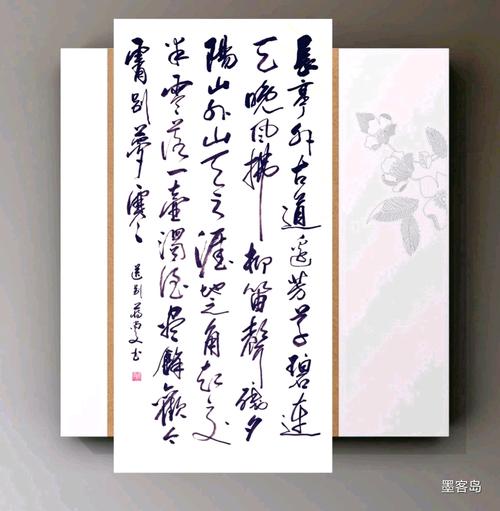 長亭外古道邊芳草碧連
天晚風拂柳笛聲殘夕
陽山外山天之涯地之角知交
半零落一壺濁酒盡餘歡今
宵別夢寒
送別
墨客岛